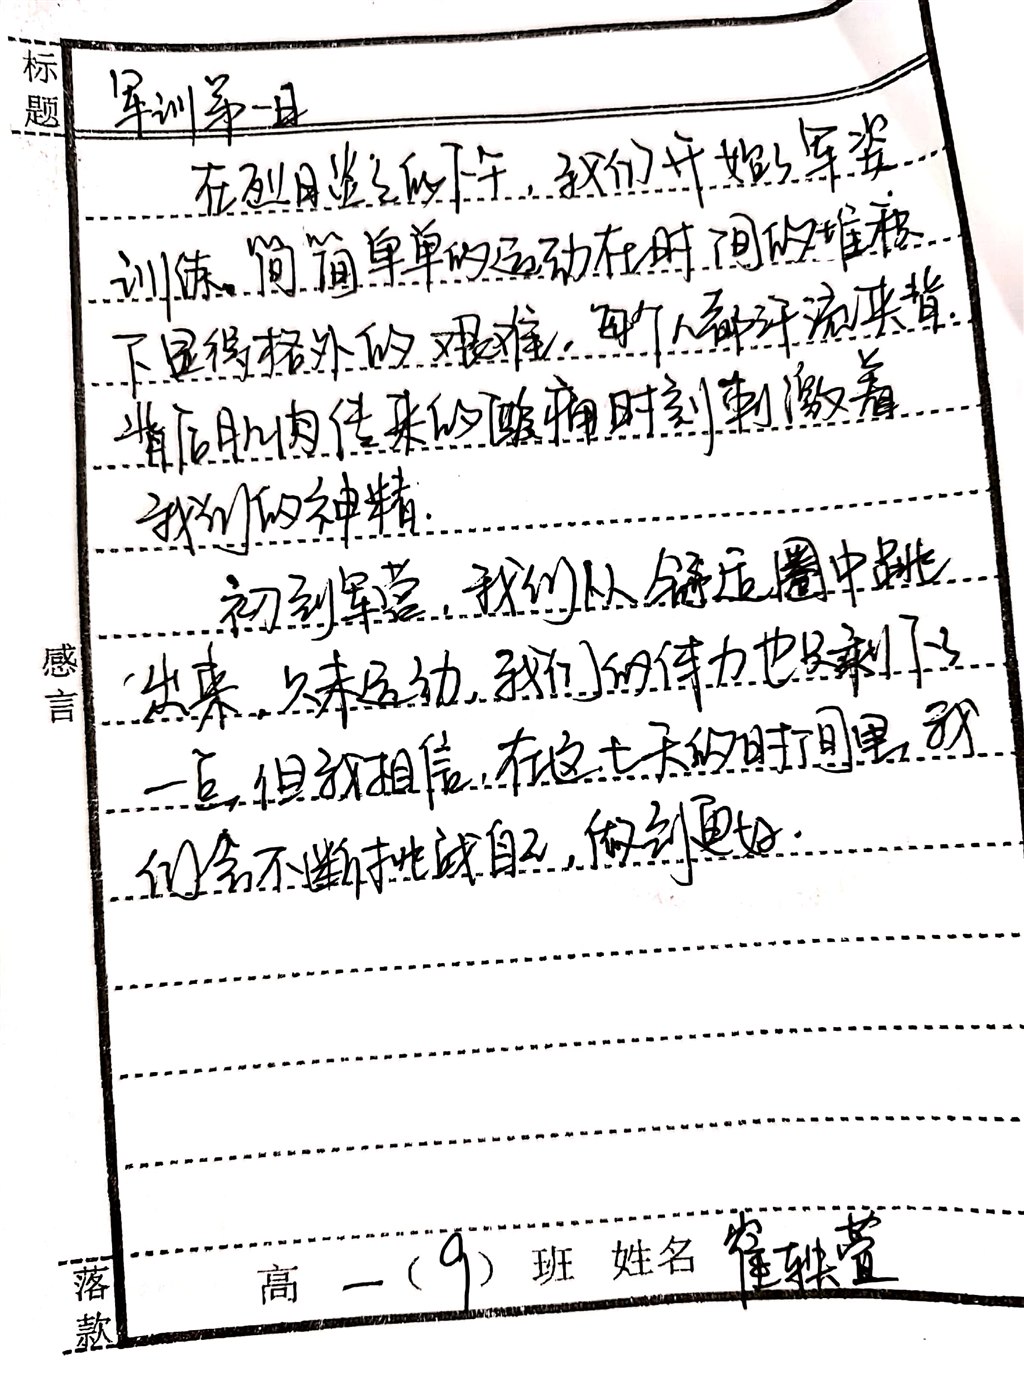 标题
军训第一日
在烈日当空的下午，我们开始军姿
训练。简简单单的运动在时间的堆积
下显得格外的艰难。每个人都汗流夹背.
背后肌肉传来的酸痛时刻刺激着
我们的神精.
初到军营，我们从舒适圈中跳
出来，久未运动，我们的体力也只剩下
一点，但我相信，在这七天的时间里，我
们会不断挑战自己，做到更好.
感言
落款
高一（9）班 姓名 崔轶萱